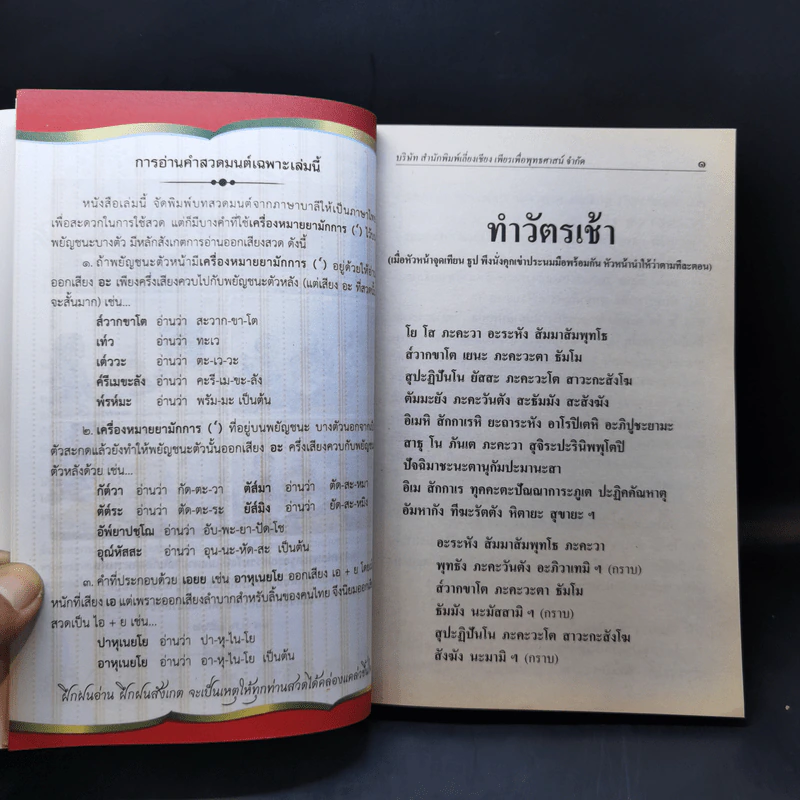 การอ่านคำสวดมนต์เฉพาะเล่มนี้
หนังสือเล่มนี้ จัดพิมพ์บทสวดมนต์จากภาษาบาลีให้เป็นภาษาไทย
เพื่อสะดวกในการใช้สวด แต่ก็มีบางคำที่ใช้เครื่องหมายยามักการ (๎) ไว้บน
พยัญชนะบางตัว มีหลักสังเกตการอ่านออกเสียงสวด ดังนี้
๑. ถ้าพยัญชนะตัวหน้ามีเครื่องหมายยามักการ (๎) อยู่ด้วยให้อ่าน
ออกเสียง อะ เพียงครึ่งเสียงควบไปกับพยัญชนะตัวหลัง (แต่เสียง อะ ที่สวด
จะสั้นมาก) เช่น...
ส๎วากขาโต อ่านว่า สะวาก-ขา-โต
เท๎ว อ่านว่า ทะเว
เต๎วะ อ่านว่า ตะ-เว-วะ
ค๎รีเมขะลัง อ่านว่า คะรี-เม-ขะ-ลัง
พ๎รหมะ อ่านว่า พรัม-มะ เป็นต้น
๒. เครื่องหมายยามักการ (๎) ที่อยู่บนพยัญชนะ บางตัวนอกจาก
ตัวสะกดแล้วยังทำให้พยัญชนะตัวนั้นออกเสียง อะ ครึ่งเสียงควบกับพยัญชนะ
ตัวหลังด้วย เช่น...
กัต๎วา อ่านว่า กัด-ตะ-วา ตัส๎มา อ่านว่า ตัด-สะ-หมา
ตัต๎ระ อ่านว่า ตัด-ตะ-ระ ยัส๎มิง อ่านว่า ยัด-สะ-หมิง
อัพ๎ยาปชฺโฌ อ่านว่า อับ-พะ-ยา-ปัด-โช
อุณ๎หัสสะ อ่านว่า อุน-นะ-หัด-สะ เป็นต้น
๓. คำที่ประกอบด้วย เอยย เช่น อาหุเนยโย ออกเสียง เอ + ย โดย
หนักที่เสียง เอ แต่เพราะออกเสียงลำบากสำหรับลิ้นของคนไทย จึงนิยมออกเสียง
สวดเป็น ไอ + ย เช่น...
ปาหุเนยโย อ่านว่า ปา-หุ-ไน-โย
อาหุเนยโย อ่านว่า อา-หุ-ไน-โย เป็นต้น
ฝึกฝนอ่าน ฝึกฝนสังเกต จะเป็นเหตุให้ทุกท่านสวดได้คล่องแคล่วขึ้น
บริษัท สำนักพิมพ์เลี่ยงเชียง เพียรเพื่อพุทธศาสน์ จำกัด ๑
ทำวัตรเช้า
(เมื่อหัวหน้าจุดเทียน ธูป พึงนั่งคุกเข่าประนมมือพร้อมกัน หัวหน้านำให้ว่าตามทีละตอน)
โย โส ภะคะวา อะระหัง สัมมาสัมพุทโธ
ส๎วากขาโต เยนะ ภะคะวะตา ธัมโม
สุปะฏิปันโน ยัสสะ ภะคะวะโต สาวะกะสังโฆ
ตัมมะยัง ภะคะวันตัง สะธัมมัง สะสังฆัง
อิเมหิ สักกาเรหิ ยะถาระหัง อาโรปิเตหิ อะภิปูชะยามะ
สาธุ โน ภันเต ภะคะวา สุจิระปะรินิพพุโตปิ
ปัจฉิมาชะนะตานุกัมปะมานะสา
อิเม สักกาเร ทุคคะตะปัณณาการะภูเต ปะฏิคคัณหาตุ
อัมหากัง ทีฆะรัตตัง หิตายะ สุขายะ ฯ
อะระหัง สัมมาสัมพุทโธ ภะคะวา
พุทธัง ภะคะวันตัง อะภิวาเทมิ ฯ (กราบ)
ส๎วากขาโต ภะคะวะตา ธัมโม
ธัมมัง นะมัสสามิ ฯ (กราบ)
สุปะฏิปันโน ภะคะวะโต สาวะกะสังโฆ
สังฆัง นะมามิ ฯ (กราบ)